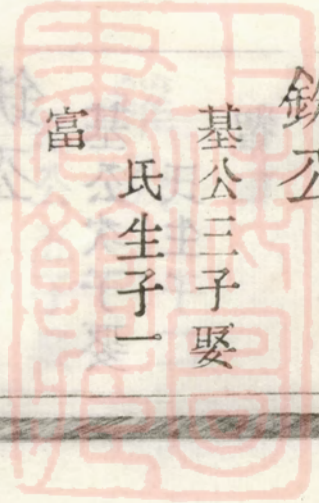 公
基公三子娶
氏生子一
富